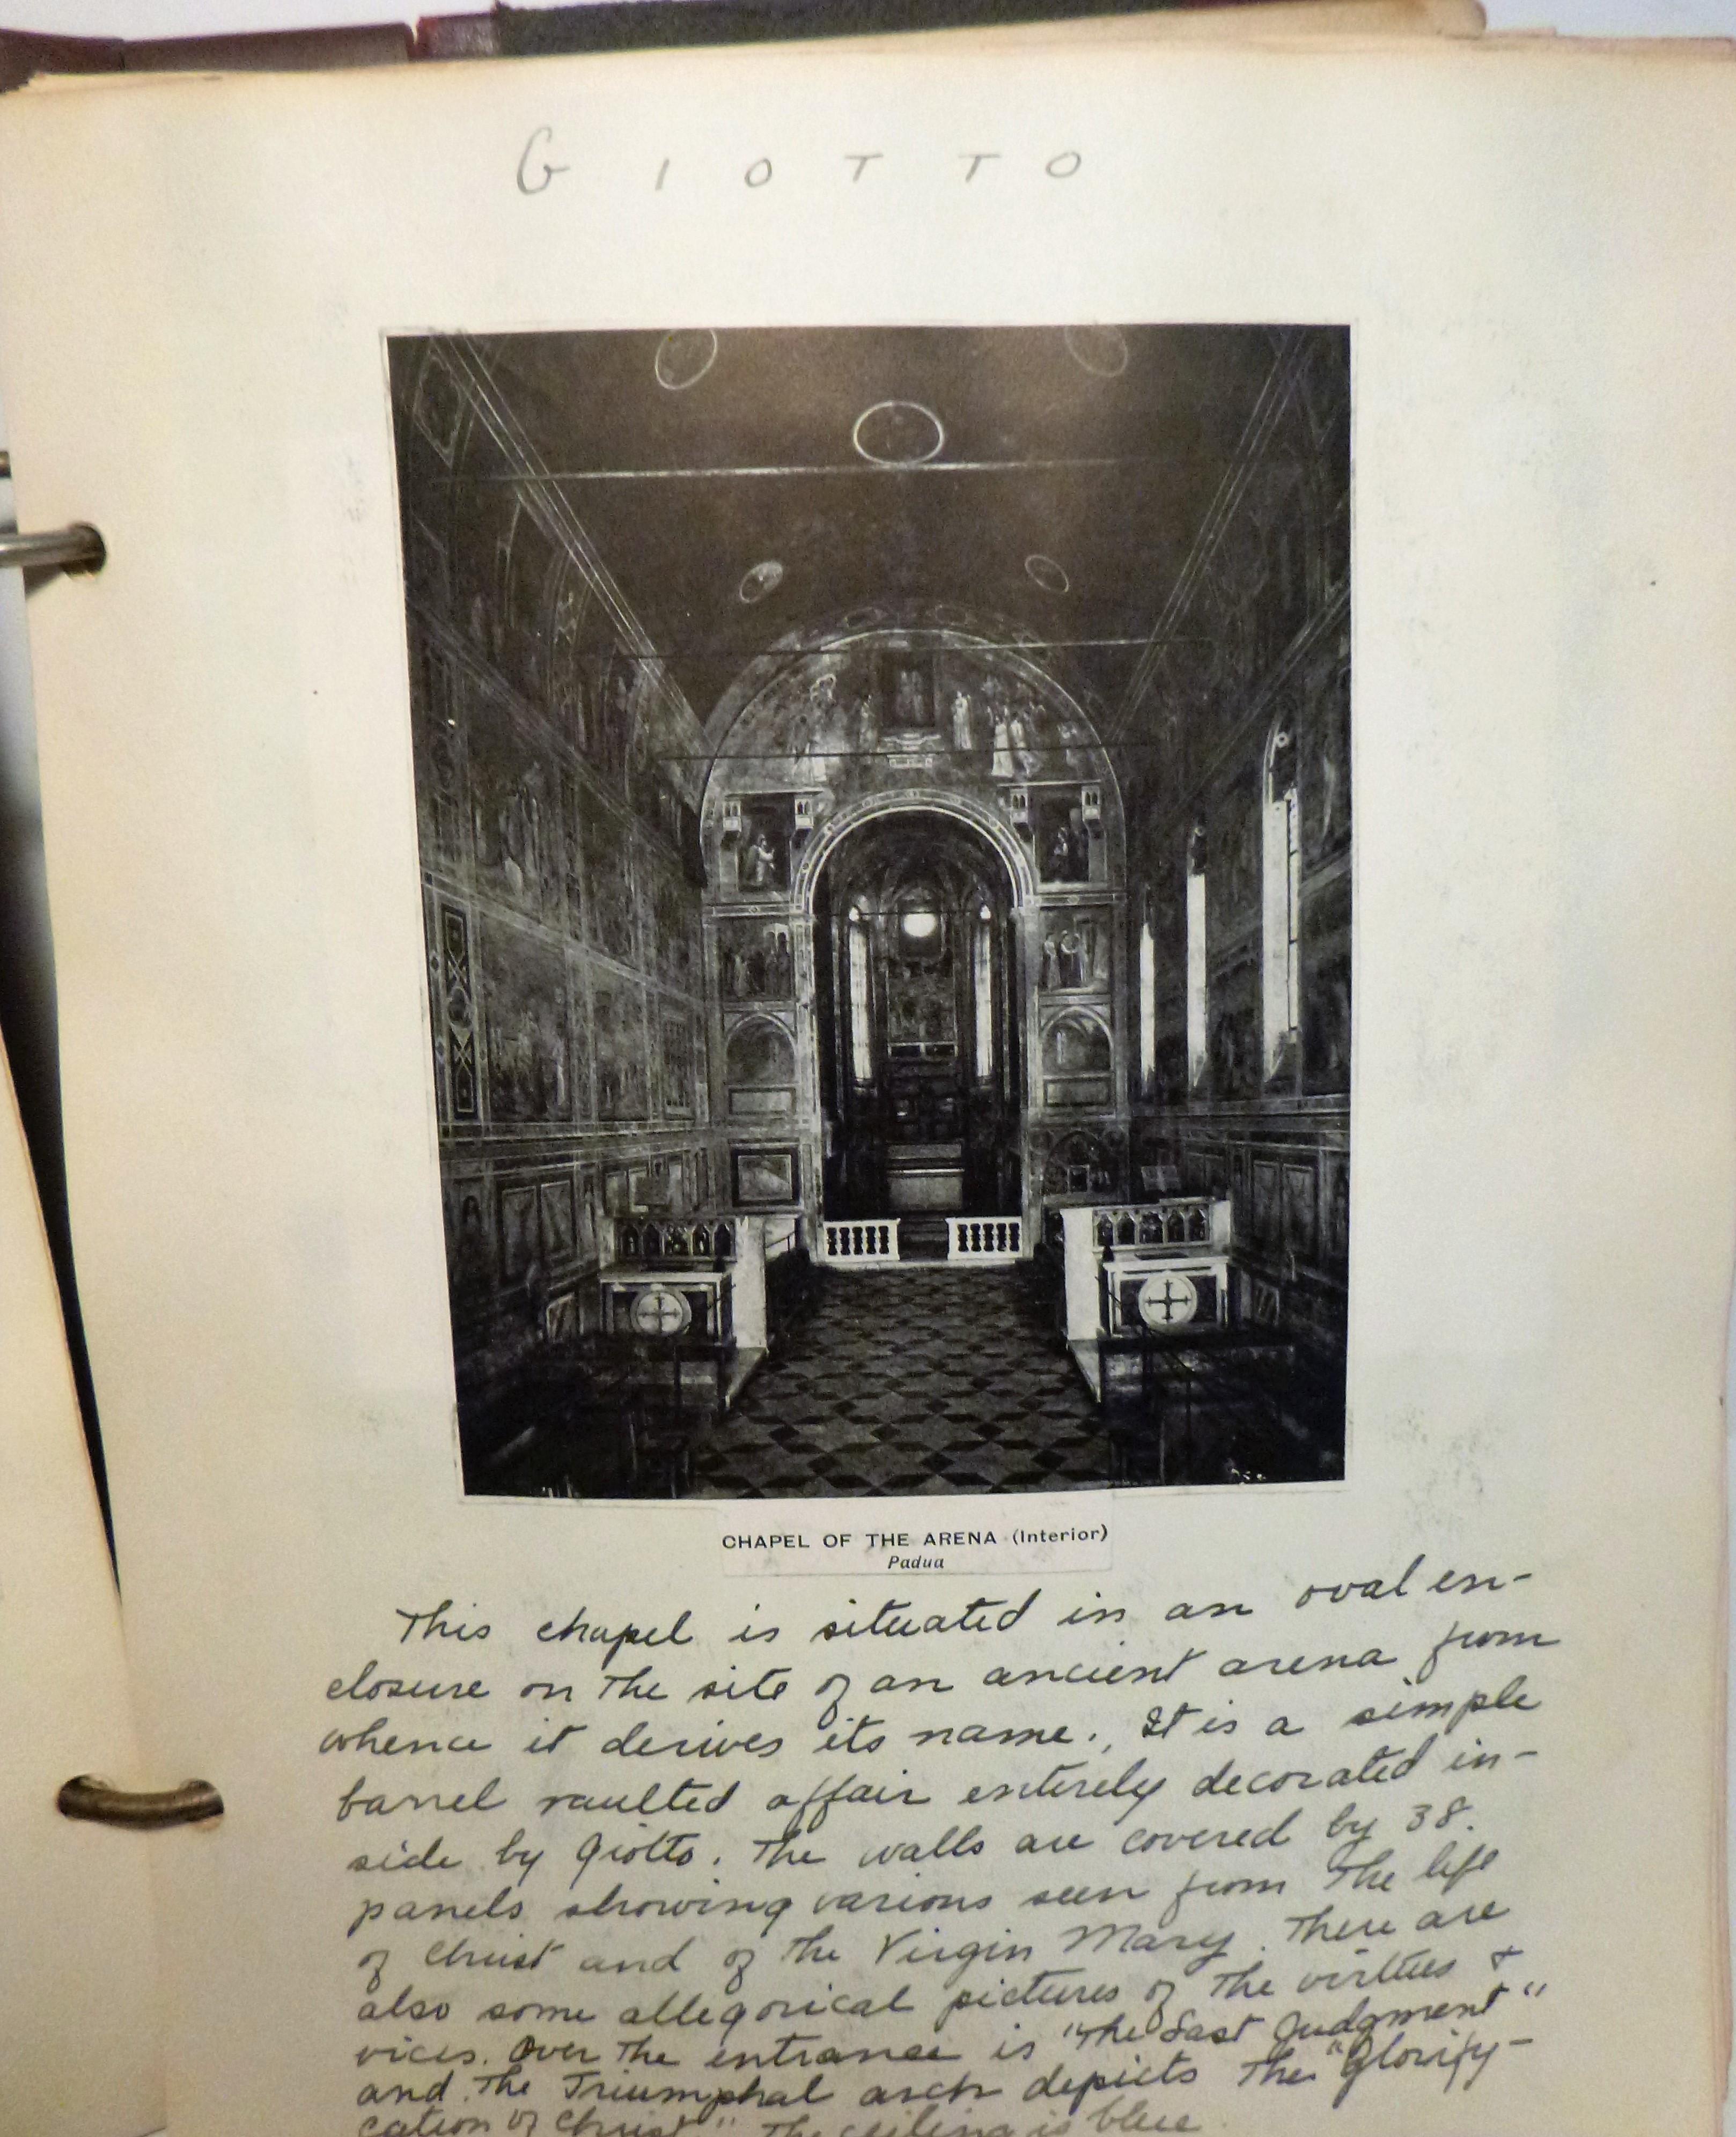 GIOTTO
CHAPEL OF THE ARENA (Interior)
Padua
This chapel is situated in an oval en-
closure on the site of an ancient arena from
whence it derives its name. It is a simple
barrel vaulted affair entirely decorated in-
side by Giotto. The walls are covered by 38.
panels showing various seen from the life
of Christ and of the Virgin Mary. There are
also some allegorical pictures of the virtues &
vices. Over the entrance is "The Last Judgment"
and the Triumphal arch depicts the "Glorify-
cation of Christ" The ceiling is blue.